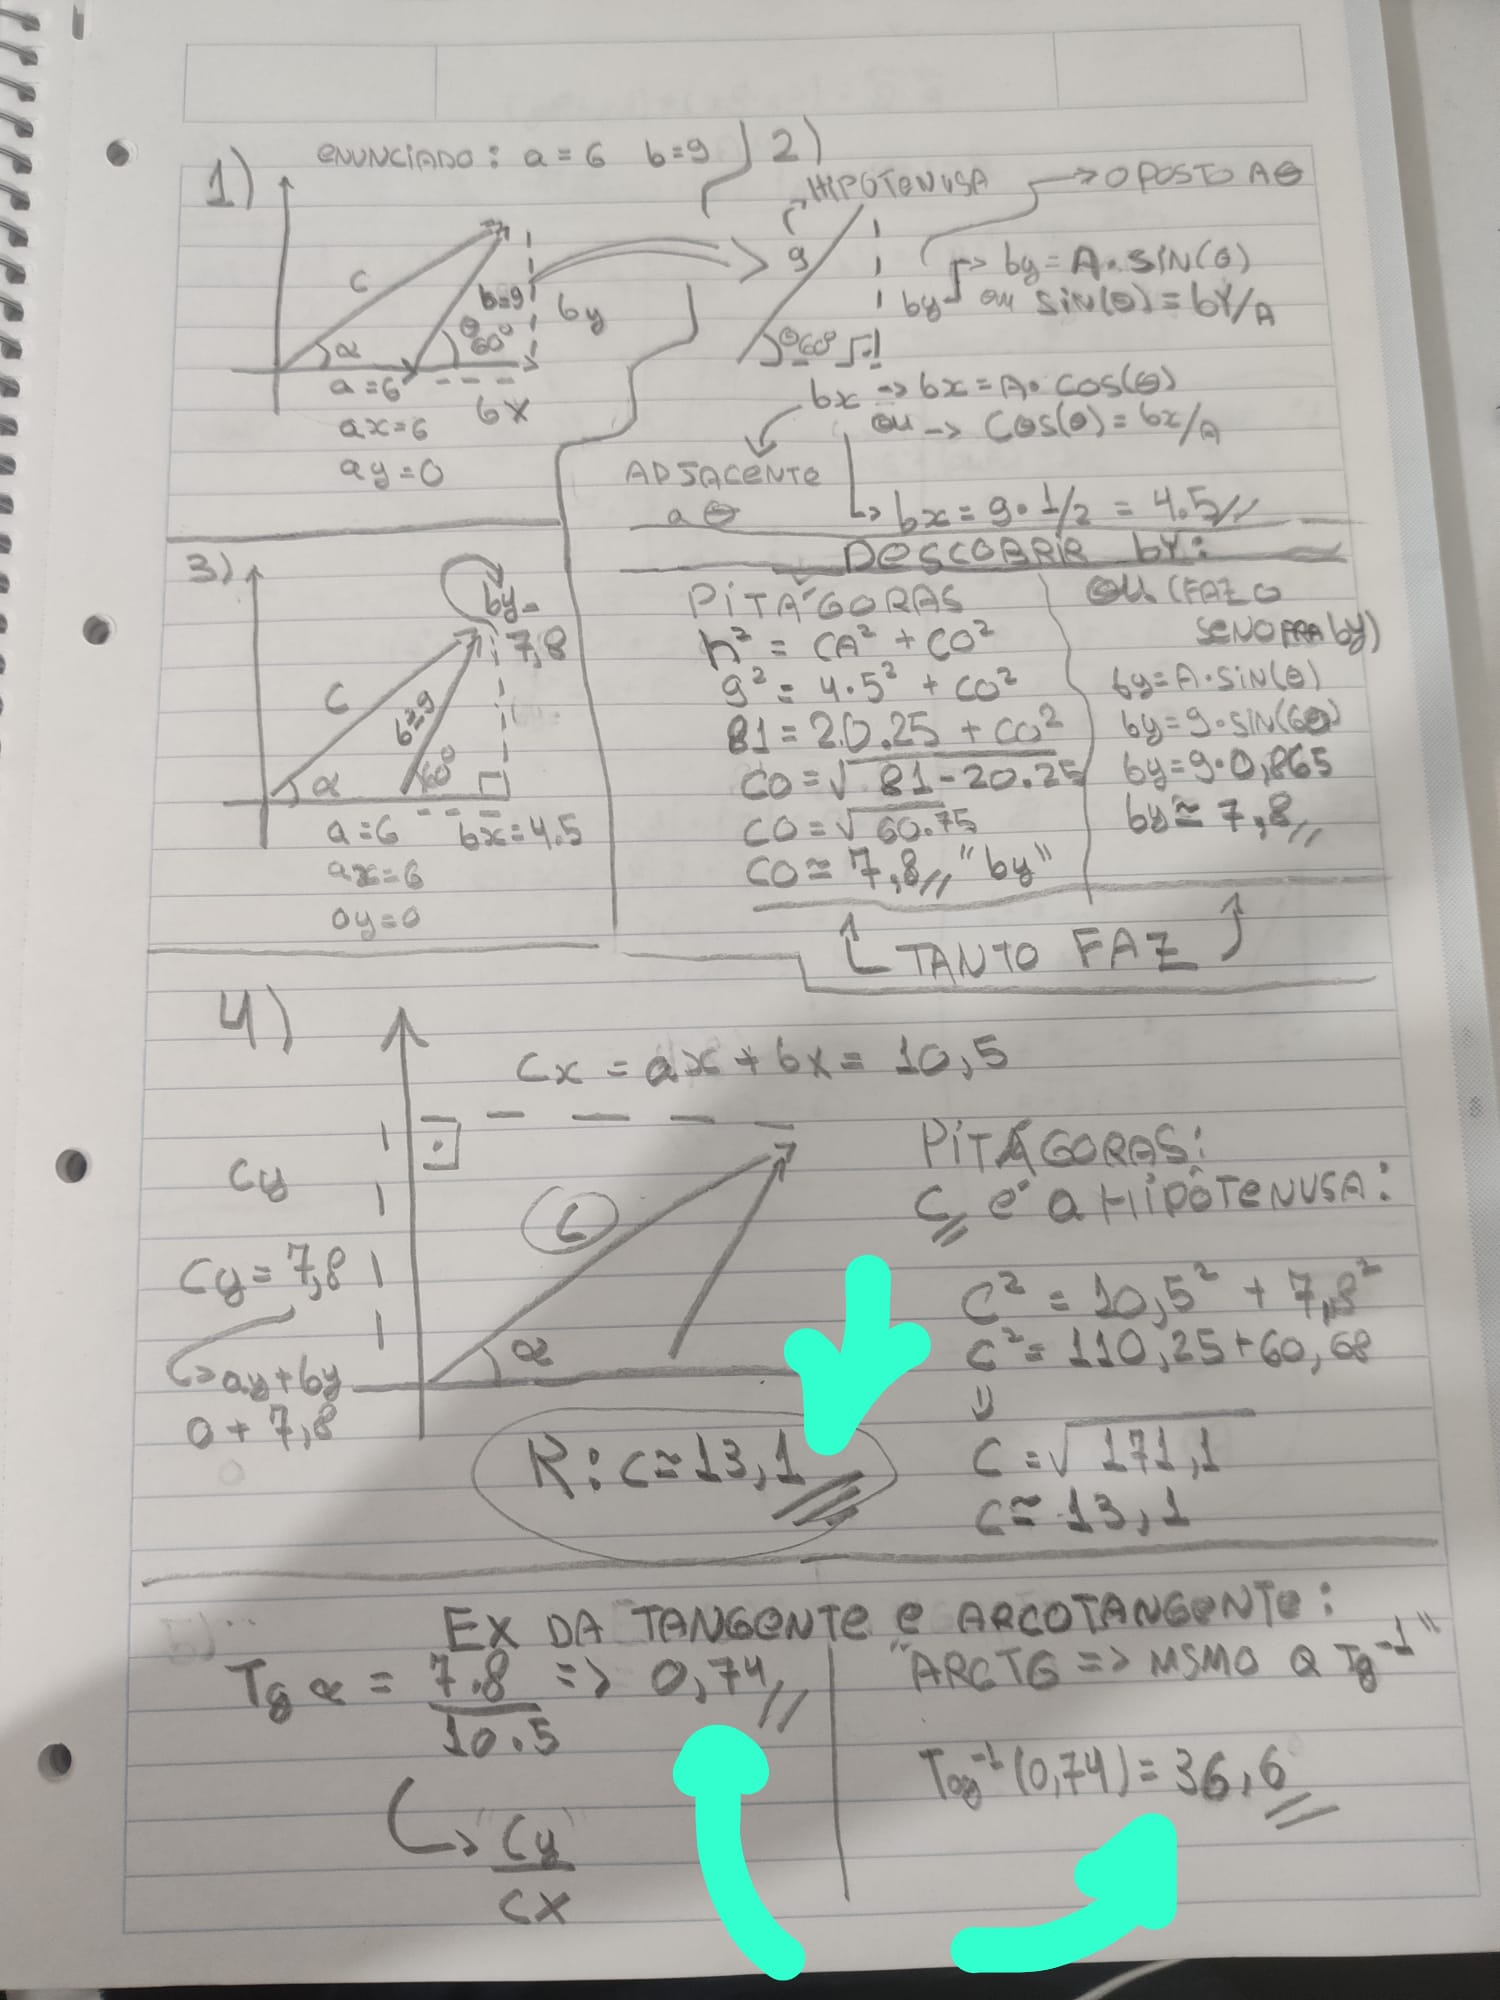 1)
ENUNCIADO: a = 6 b=9
c
b=9
θ
60°
by
α
a=6
bx
ax=6
ay=0
2)
HIPOTENUSA
OPOSTO A θ
9
by
by = A.SIN(θ)
ou SIN(θ) = bY/A
θ60°
bx -> bx = A. COS(θ)
ou -> COS(θ) = bx/A
ADJACENTE
a θ
bx = 9.1/2 = 4.5
DESCOBRIR bY:
PITÁGORAS
h² = CA² + CO²
9² = 4.5² + CO²
81 = 20.25 + CO²
CO = √81-20.25
CO = √60.75
CO ≃ 7,8 "by"
OU (FAZ O
SENO PRA by)
by = A.SIN(θ)
by = 9.SIN(60)
by = 9.0,865
by ≃ 7,8
TANTO FAZ
3)
by =
7,8
c
b=9
α
60°
a=6 bx=4.5
ax=6
ay=0
4)
Cx = ax + bx = 10,5
Cy
Cy = 7,8
ay+by
0 + 7,8
C
α
PITÁGORAS:
C é a HIPÓTENUSA:
C² = 10,5² + 7,8²
C² = 110,25+60,68
C = √171,1
C ≃ 13,1
R: C ≃ 13,1
EX DA TANGENTE e ARCOTANGENTE:
Tg α = 7.8 => 0,74
10.5
"Cy"
Cx
"ARCTG => MSMO Q Tg⁻¹"
Tg⁻¹(0,74) = 36,6